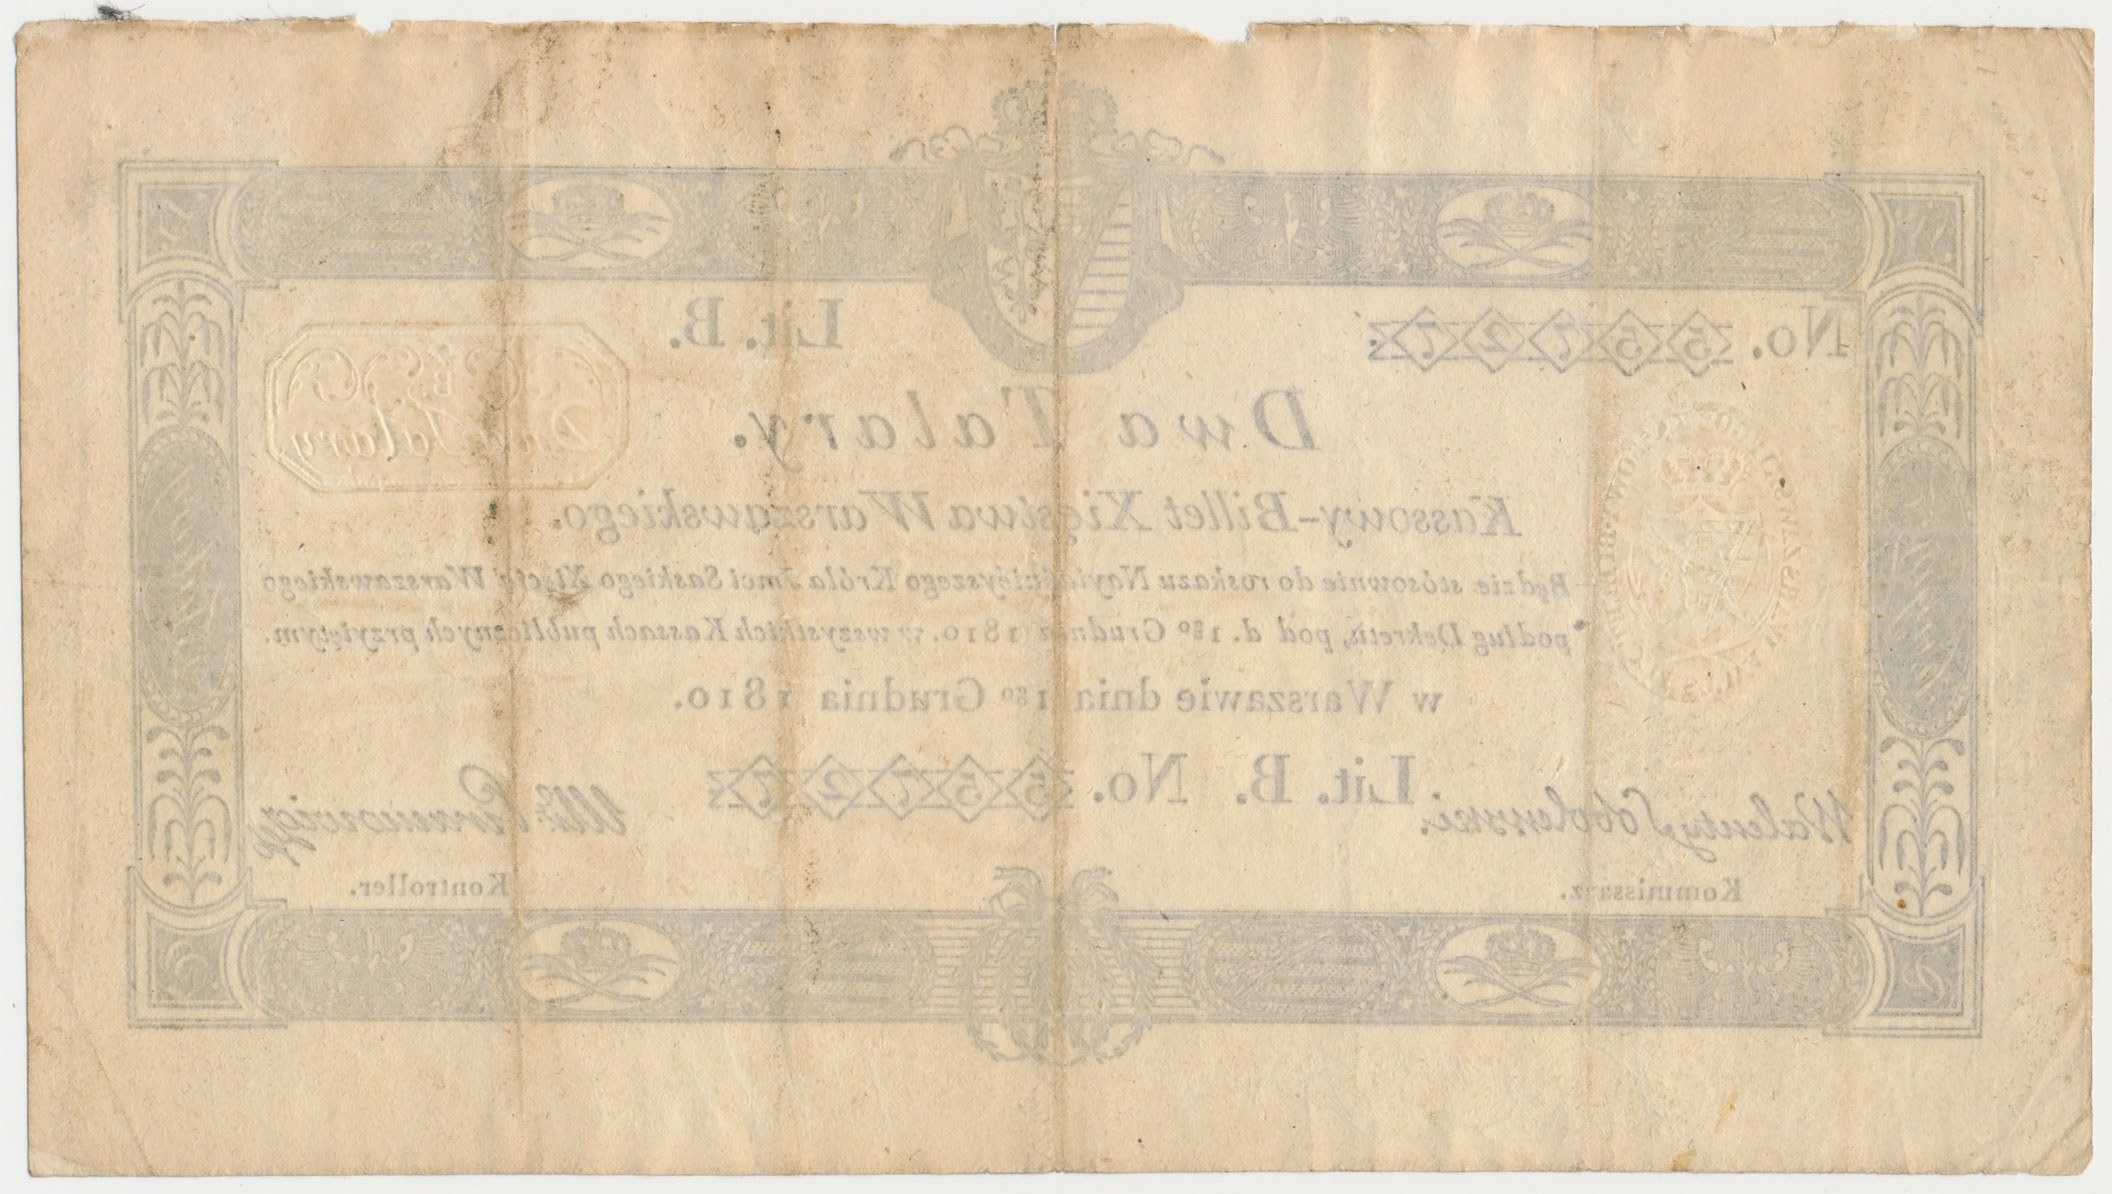 No. 55727. Lit. B.
Dwa Talary.
Kassowy-Billet Xięstwa Warszawskiego.
Będzie stósownie do roskazu Nayiaśnieyszego Króla Jmci Saskiego Xięcia Warszawskiego
podług Dekretu, pod d. 1go Grudnia 1810. w wszystkich Kassach publicznych przyiętym.
w Warszawie dnia 1go Grudnia 1810.
Lit. B. No. 55727
Walenty Sobolewski.
Kommissarz.
Kontroller.
B
Dwa Talary